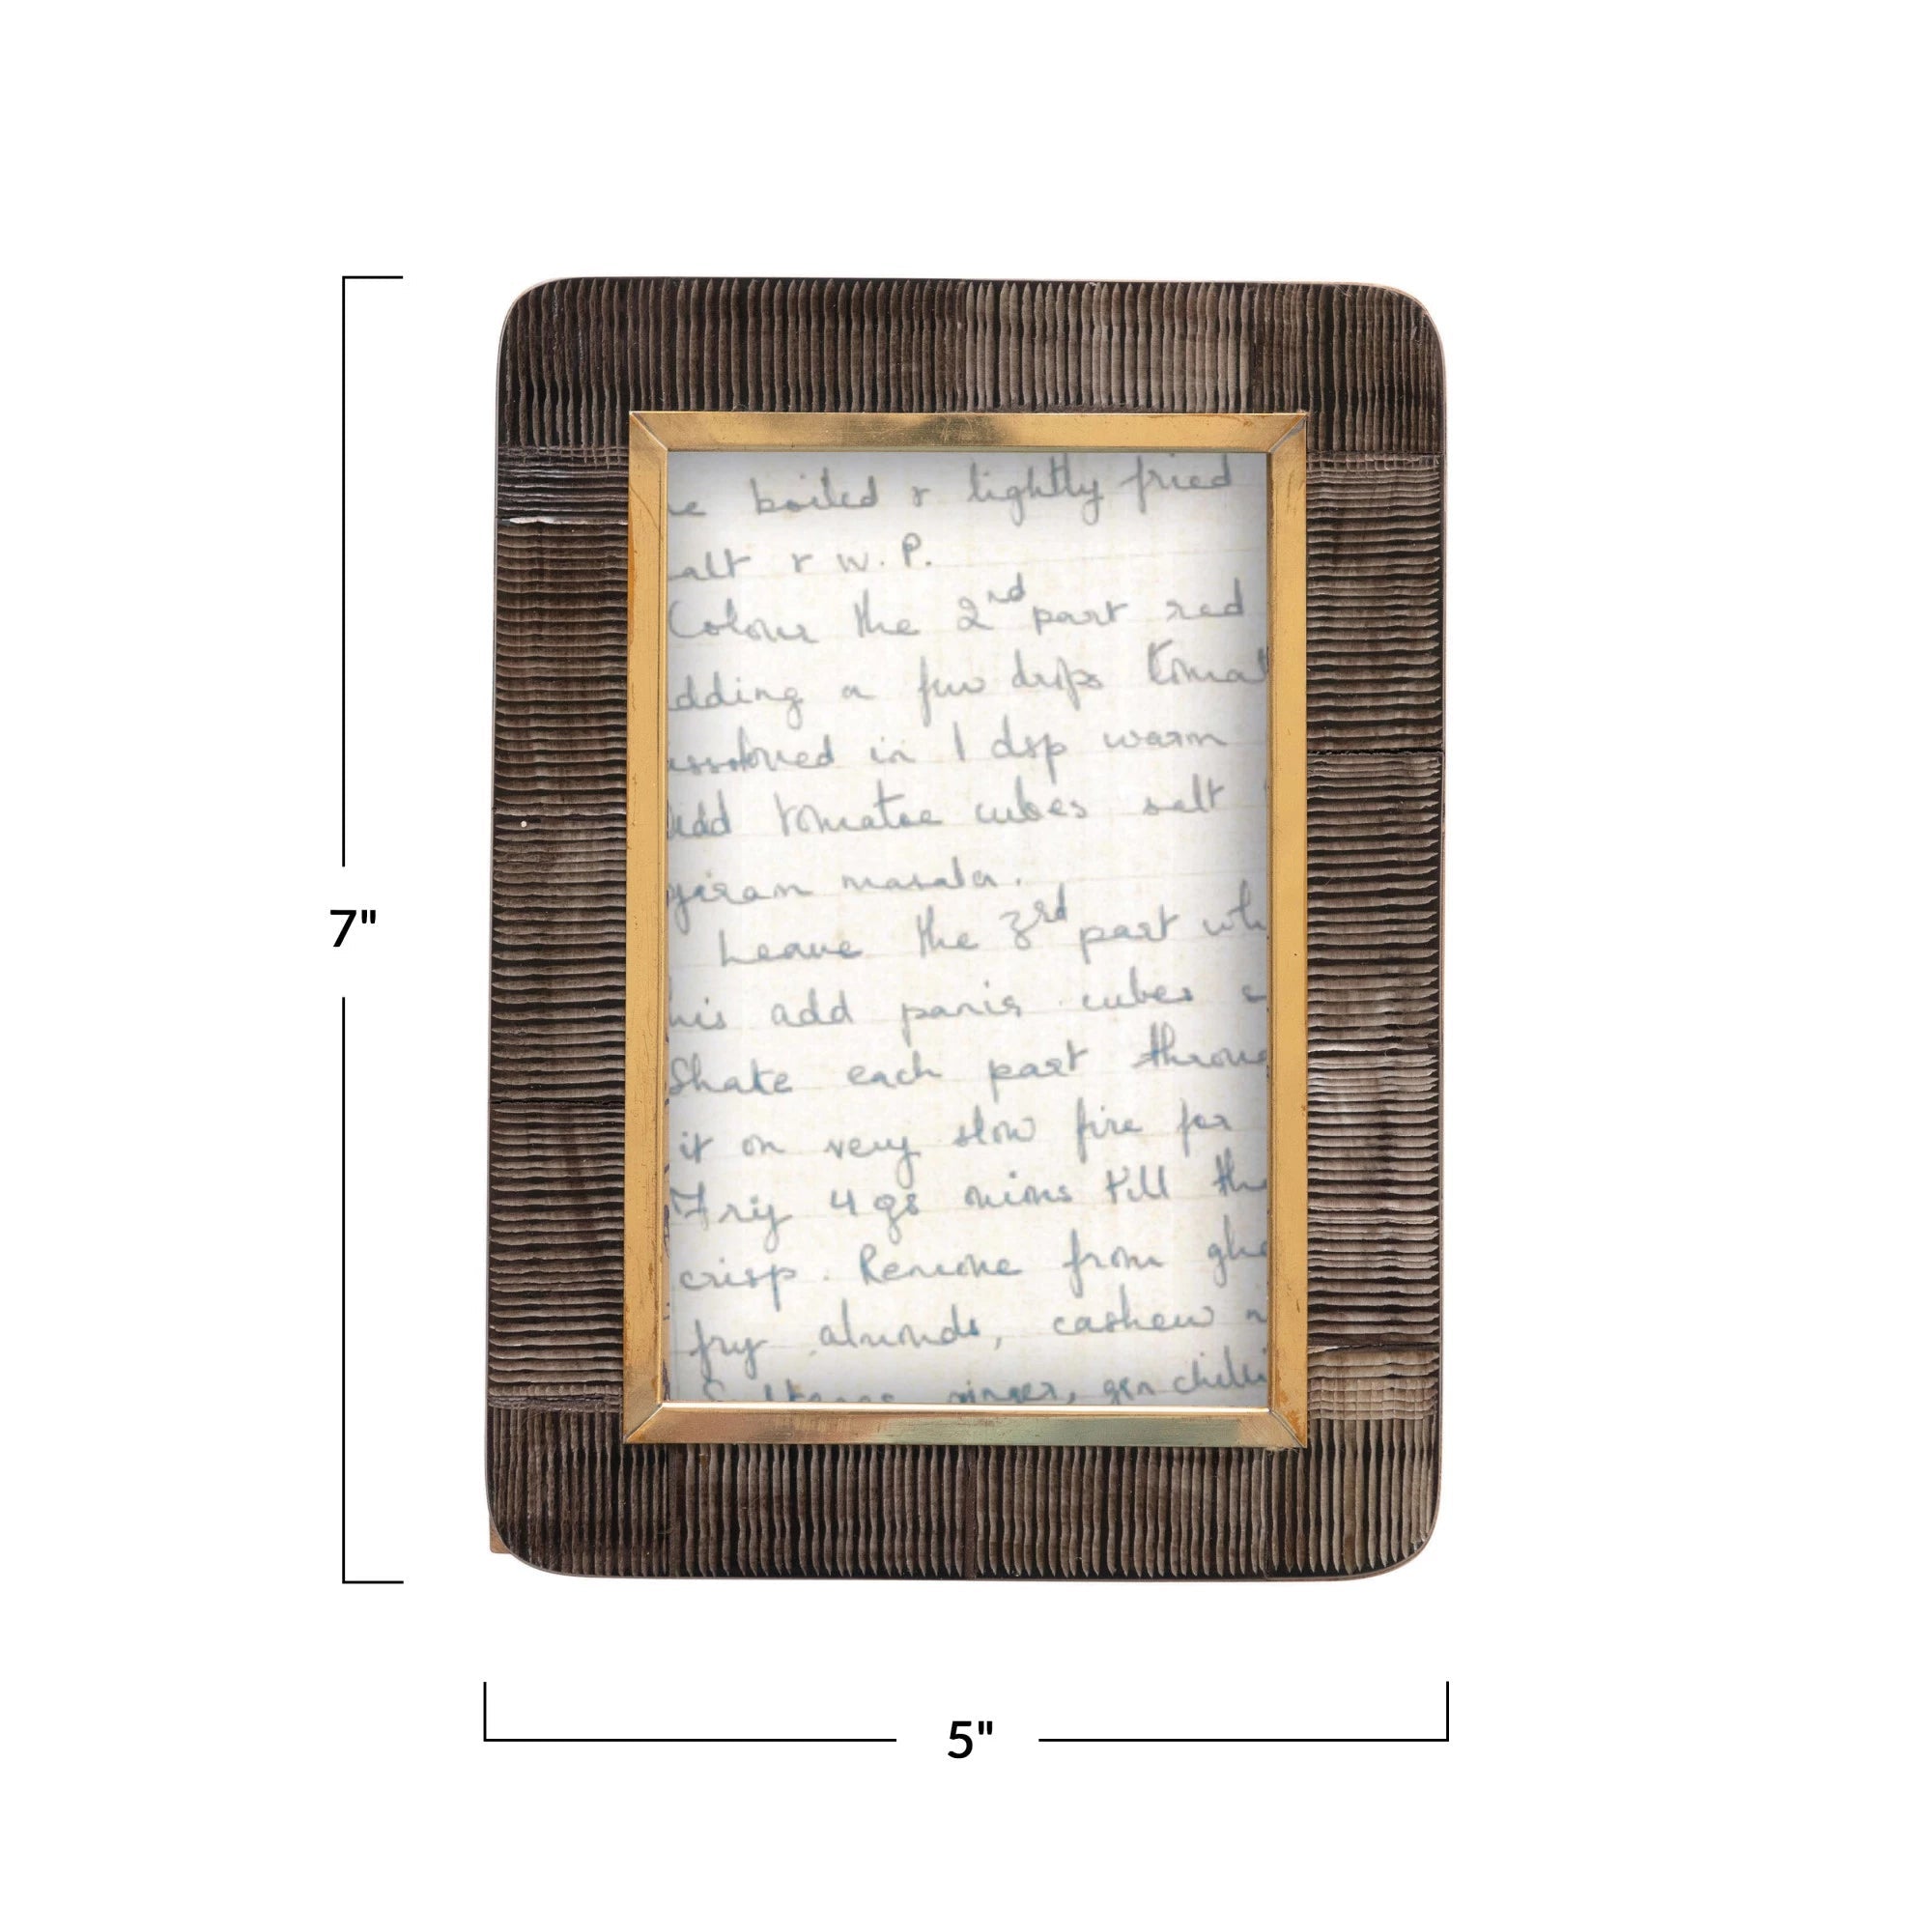 e boiled & lightly fried
alt & W.P.
Colour the 2nd part red
dding a few drops tomat
ssolved in 1 dsp warm
Add tomatoe cubes salt
garam masala.
Leave the 3rd part whi
his add panir cubes
Shake each part throu
it on very slow fire for
Fry 4 gs onions till the
crisp. Remove from ghe
fry almonds, cashew n
ginger, grn chilli
7"
5"